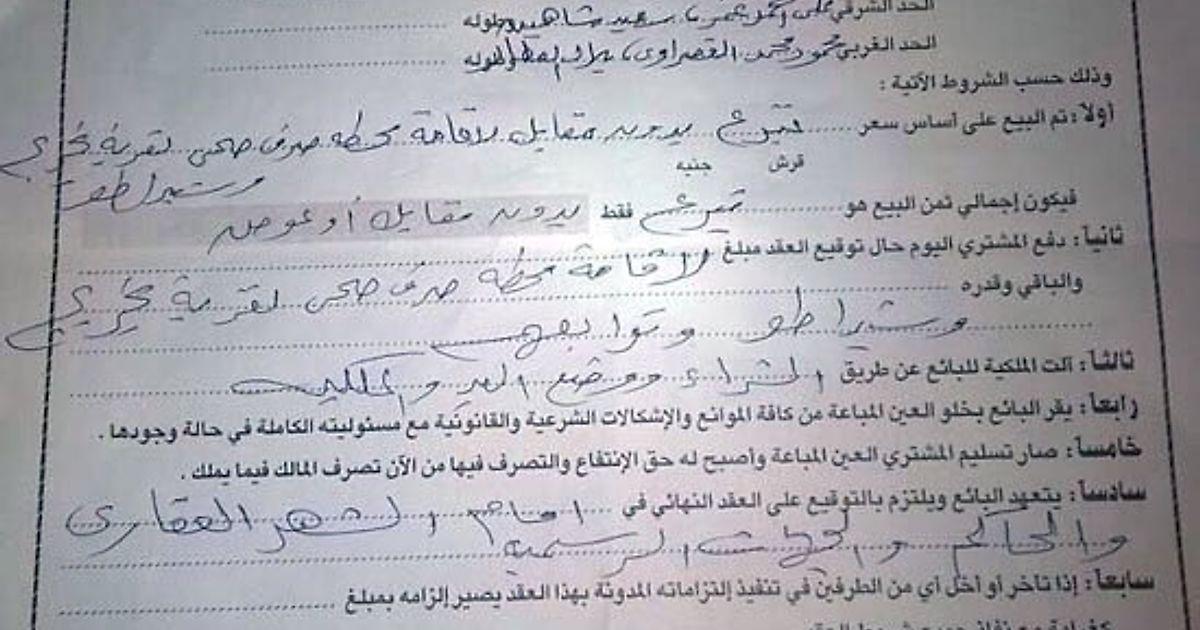 الحد الشرقي على أحمد عمر، سعيد شاهين وطوله
الحد الغربي محمود محمد القصراوى، بلال وطوله
وذلك حسب الشروط الآتية :
أولاً : تم البيع على أساس سعر تبرع بدون مقابل لإقامة محطة صرف صحى لقرية
قرش جنيه
فيكون إجمالي ثمن البيع هو تبرع فقط بدون مقابل أو عوض
ثانياً : دفع المشتري اليوم حال توقيع العقد مبلغ
والباقي وقدره لإقامة محطة صرف صحى لقرية
وتوابعهم
ثالثاً : آلت الملكية للبائع عن طريق الشراء ووضع اليد والملكية
رابعاً : يقر البائع بخلو العين المباعة من كافة الموانع والإشكالات الشرعية والقانونية مع مسئوليته الكاملة في حالة وجودها .
خامساً : صار تسليم المشتري العين المباعة وأصبح له حق الإنتفاع والتصرف فيها من الآن تصرف المالك فيما يملك .
سادساً : يتعهد البائع ويلتزم بالتوقيع على العقد النهائي في أمام الشهر العقارى
والمحاكم والجهات الرسمية
سابعاً : إذا تأخر أو أخل أي من الطرفين في تنفيذ إلتزاماته المدونة بهذا العقد يصير إلزامه بمبلغ